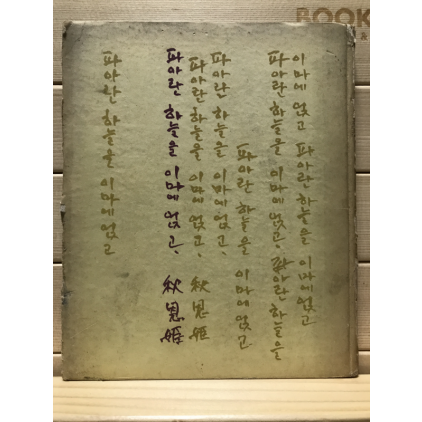 BOOK
이마에 얹고 파아란 하늘을 이마에 얹고
파아란 하늘을 이마에 얹고, 파아란 하늘을
파아란 하늘을 이마에 얹고
파아란 하늘을 이마에 얹고,
파아란 하늘을 이마에 얹고, 秋恩姬
파아란 하늘을 이마에 얹고, 秋恩姬
파아란 하늘을 이마에 얹고